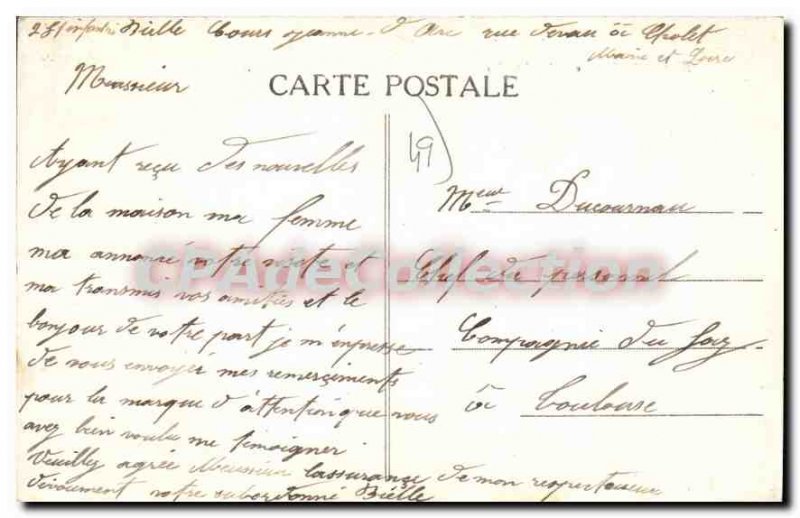 Bielle Cours Jeanne d'Arc rue à Cholet
Maine et Loire
Monsieur
CARTE POSTALE
49
Ayant reçu des nouvelles
de la maison ma femme
ma annoncé votre visite et
ma transmis vos amitiés et le
bonjour de votre part je m'enpresse
de vous envoyer mes remerciments
pour la marque d'attention que vous
avez bien voulu me témoigner
Veuilly agrée Monsieur lassurance de mon respectueux
dévouement votre subordonné Bielle
Mr Ducournau
Chef du personnel
Compagnie du Gaz
à Toulouse
CPAdeCollection